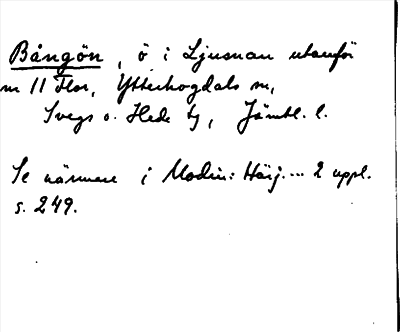 Bångön, ö i Ljusnan utanför
m 11 Flor, Ytterhogdals sn,
Svegs o. Hede tg, Jämtl. l.
Se närmare i Modin: Härj.... 2 uppl.
s. 249.